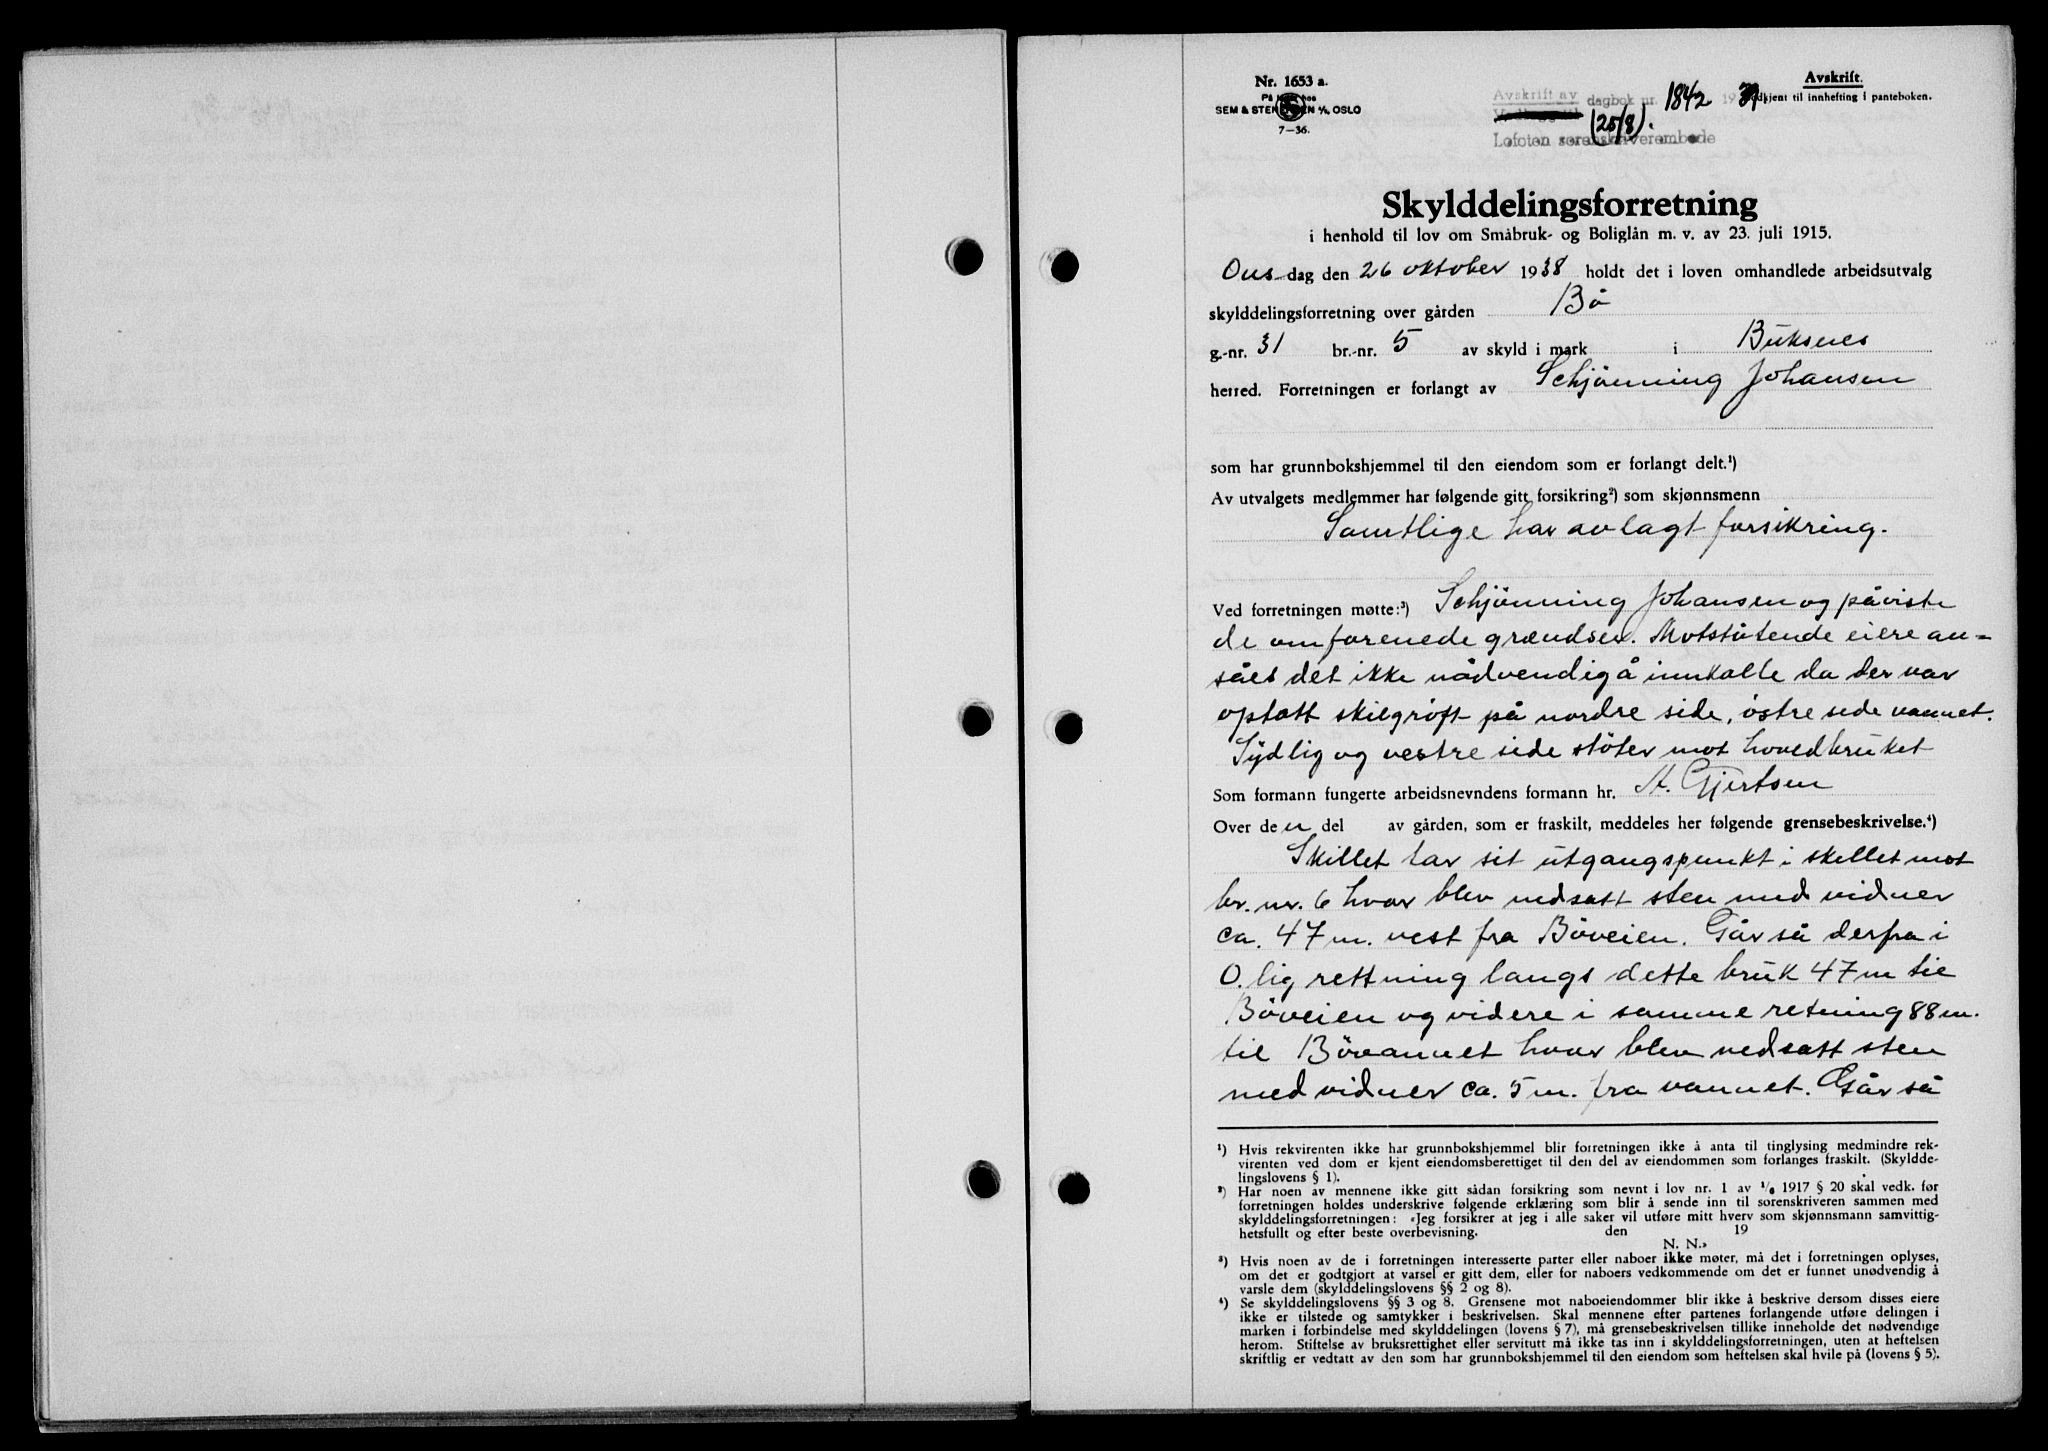 Nr. 1653 a.
På lager hos
SEM & STENERSEN A/S, OSLO
7—36.
Avskrift.
Godkjent til innhefting i panteboken.
Avskrift av
Vedlegg til
dagbok nr. 1842 1939.
(25/8).
Lofoten sorenskriverembede
Skylddelingsforretning
i henhold til lov om Småbruk- og Boliglån m. v. av 23. juli 1915.
Ons dag den 26 oktober 1938 holdt det i loven omhandlede arbeidsutvalg
skylddelingsforretning over gården Bø
g.-nr. 31 br.-nr. 5 av skyld i mark i Buksnes
herred. Forretningen er forlangt av Schjønning Johansen
som har grunnbokshjemmel til den eiendom som er forlangt delt.¹)
Av utvalgets medlemmer har følgende gitt forsikring²) som skjønnsmenn
Samtlige har avlagt forsikring.
Ved forretningen møtte:³) Schjønning Johansen og påviste
de omforenede grændser. Motstøtende eiere an-
såes det ikke nødvendig å innkalle da der var
optatt skilgrøft på nordre side, østre sede vannet.
Sydlig og vestre side støter mot hovedbruket
Som formann fungerte arbeidsnevndens formann hr. A. Gjertsen
Over den del av gården, som er fraskilt, meddeles her følgende grensebeskrivelse.⁴)
Skillet tar sit utgangspunkt i skellet mot
br. nr. 6 hvor blev nedsatt sten med vidner
ca. 47 m. vest fra Bøveien. Går så derfra i
O. lig rettning langs dette bruk 47 m til
Bøveien og videre i samme retning 88 m.
til Bøvannet hvor blev nedsatt sten
med vidner ca. 5 m. fra vannet. Går så
¹) Hvis rekvirenten ikke har grunnbokshjemmel blir forretningen ikke å anta til tinglysing medmindre rek-
virenten ved dom er kjent eiendomsberettiget til den del av eiendommen som forlanges fraskilt. (Skyldde-
lingslovens § 1).
²) Har noen av mennene ikke gitt sådan forsikring som nevnt i lov nr. 1 av 1/6 1917 § 20 skal vedk. før
forretningen holdes underskrive følgende erklæring som blir å sende inn til sorenskriveren sammen med
skylddelingsforretningen: «Jeg forsikrer at jeg i alle saker vil utføre mitt hverv som skjønnsmann samvittig-
hetsfullt og efter beste overbevisning. den 19
N. N.»
³) Hvis noen av de i forretningen interesserte parter eller naboer ikke møter, må det i forretningen oplyses,
om det er godtgjort at varsel er gitt dem, eller for naboers vedkommende om det er funnet unødvendig å
varsle dem (skylddelingslovens §§ 2 og 8).
⁴) Se skylddelingslovens §§ 3 og 8. Grensene mot naboeiendommer blir ikke å beskrive dersom disses eiere
ikke er tilstede og samtykker i beskrivelsen. Skal mennene efter partenes forlangende utføre delingen i
marken i forbindelse med skylddelingen (lovens § 7), må grensebeskrivelsen tillike inneholde det nødvendige
herom. Stiftelse av bruksrettighet eller servitutt må ikke tas inn i skylddelingsforretningen, uten at heftelsen
skriftlig er vedtatt av den som har grunnbokshjemmel til den eiendom som heftelsen skal hvile på (lovens § 5).